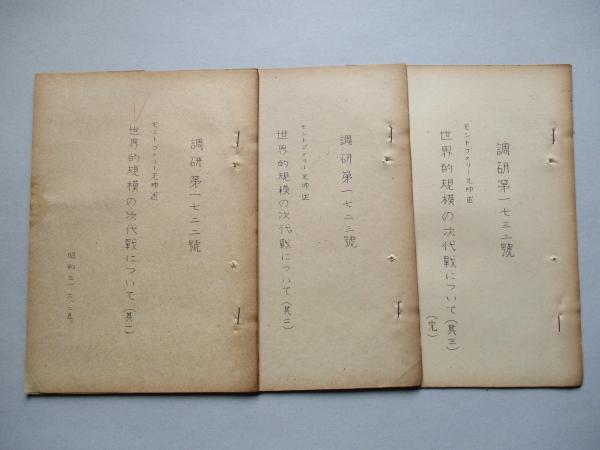 調研第一七二二號
モントゴメリー元帥述
世界的規模の次代戰について(其一)
調研第一七二三號
モントゴメリー元帥述
世界的規模の次代戰について(其二)
調研第一七三二號
モントゴメリー元帥述
世界的規模の次代戰について(其三)
(完)